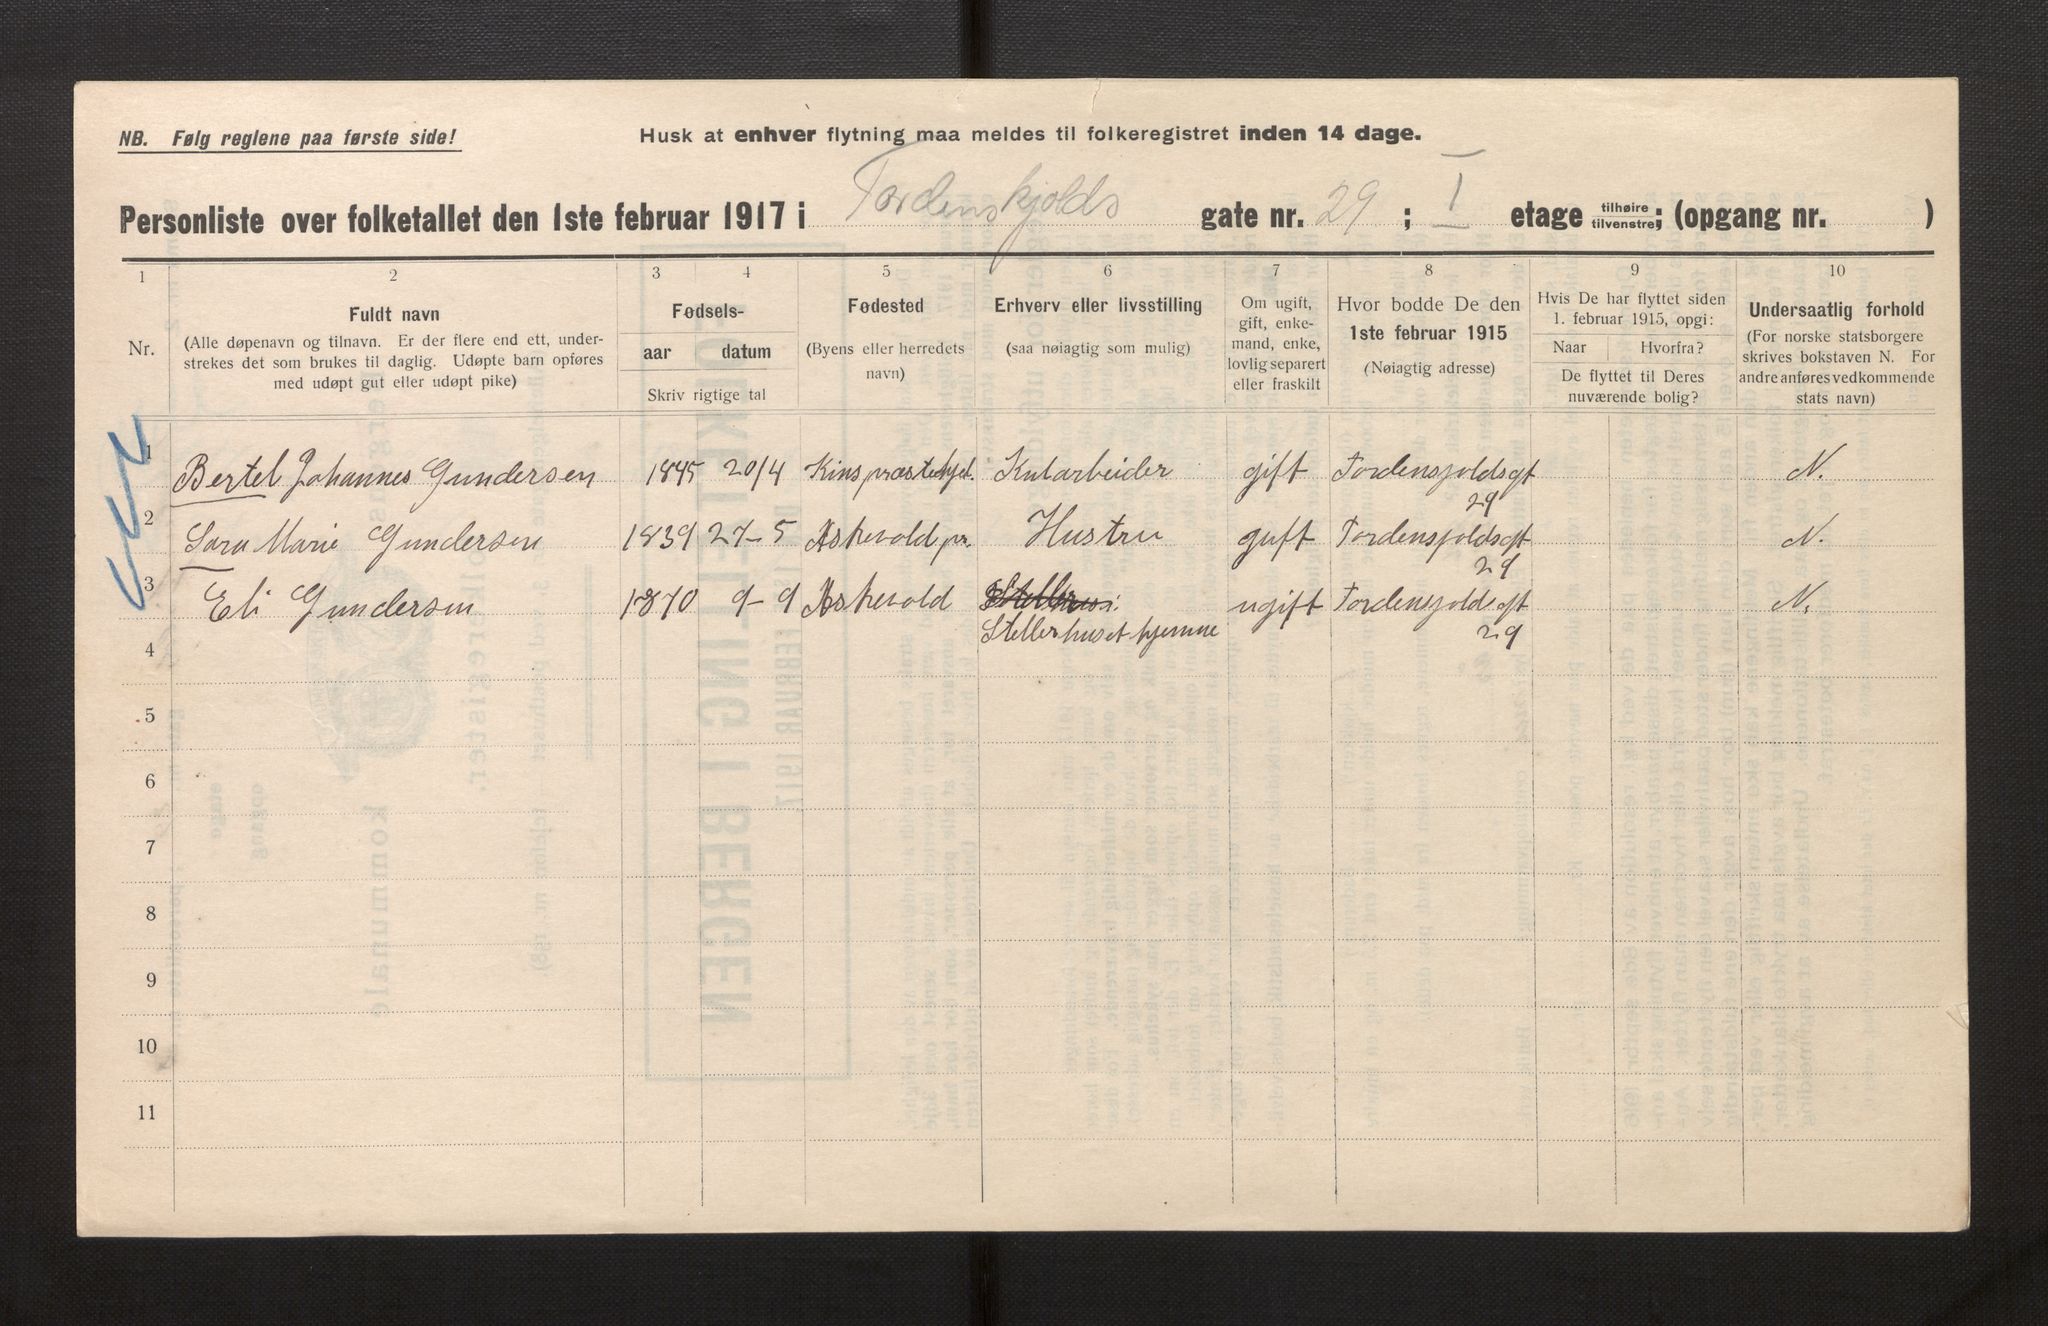 NB. Følg reglene paa første side!
Husk at enhver flytning maa meldes til folkeregistret inden 14 dage.
Personliste over folketallet den 1ste februar 1917 i Tordenskjolds gate nr. 29 ; I etage tilhøire tilvenstre; (opgang nr. )
1 2 3 4 5 6 7 8 9 10
Nr.
Fuldt navn
(Alle døpenavn og tilnavn. Er der flere end ett, under-
strekes det som brukes til daglig. Udøpte barn opføres
med udøpt gut eller udøpt pike)
Fødsels-
aar datum
Skriv rigtige tal
Fødested
(Byens eller herredets
navn)
Erhverv eller livsstilling
(saa nøiagtig som mulig)
Om ugift,
gift, enke-
mand, enke,
lovlig separert
eller fraskilt
Hvor bodde De den
1ste februar 1915
(Nøiagtig adresse)
Hvis De har flyttet siden
1. februar 1915, opgi:
Naar Hvorfra?
De flyttet til Deres
nuværende bolig?
Undersaatlig forhold
(For norske statsborgere
skrives bokstaven N. For
andre anføres vedkommende
stats navn)
1 Bertel Johannes Gundersen 1845 20/4 Kins præstegjel. gift Tordensjoldsgt 29 N.
2 Sara Marie Gundersen 1839 27-5 Askevold pr. Hustru guft Tordensjoldsgt 29 N.
3 Eli Gundersen 1870 9-9 Askevold Steller huset hjemme ugift Tordensjoldsgt 29 N.
4
5
6
7
8
9
10
11